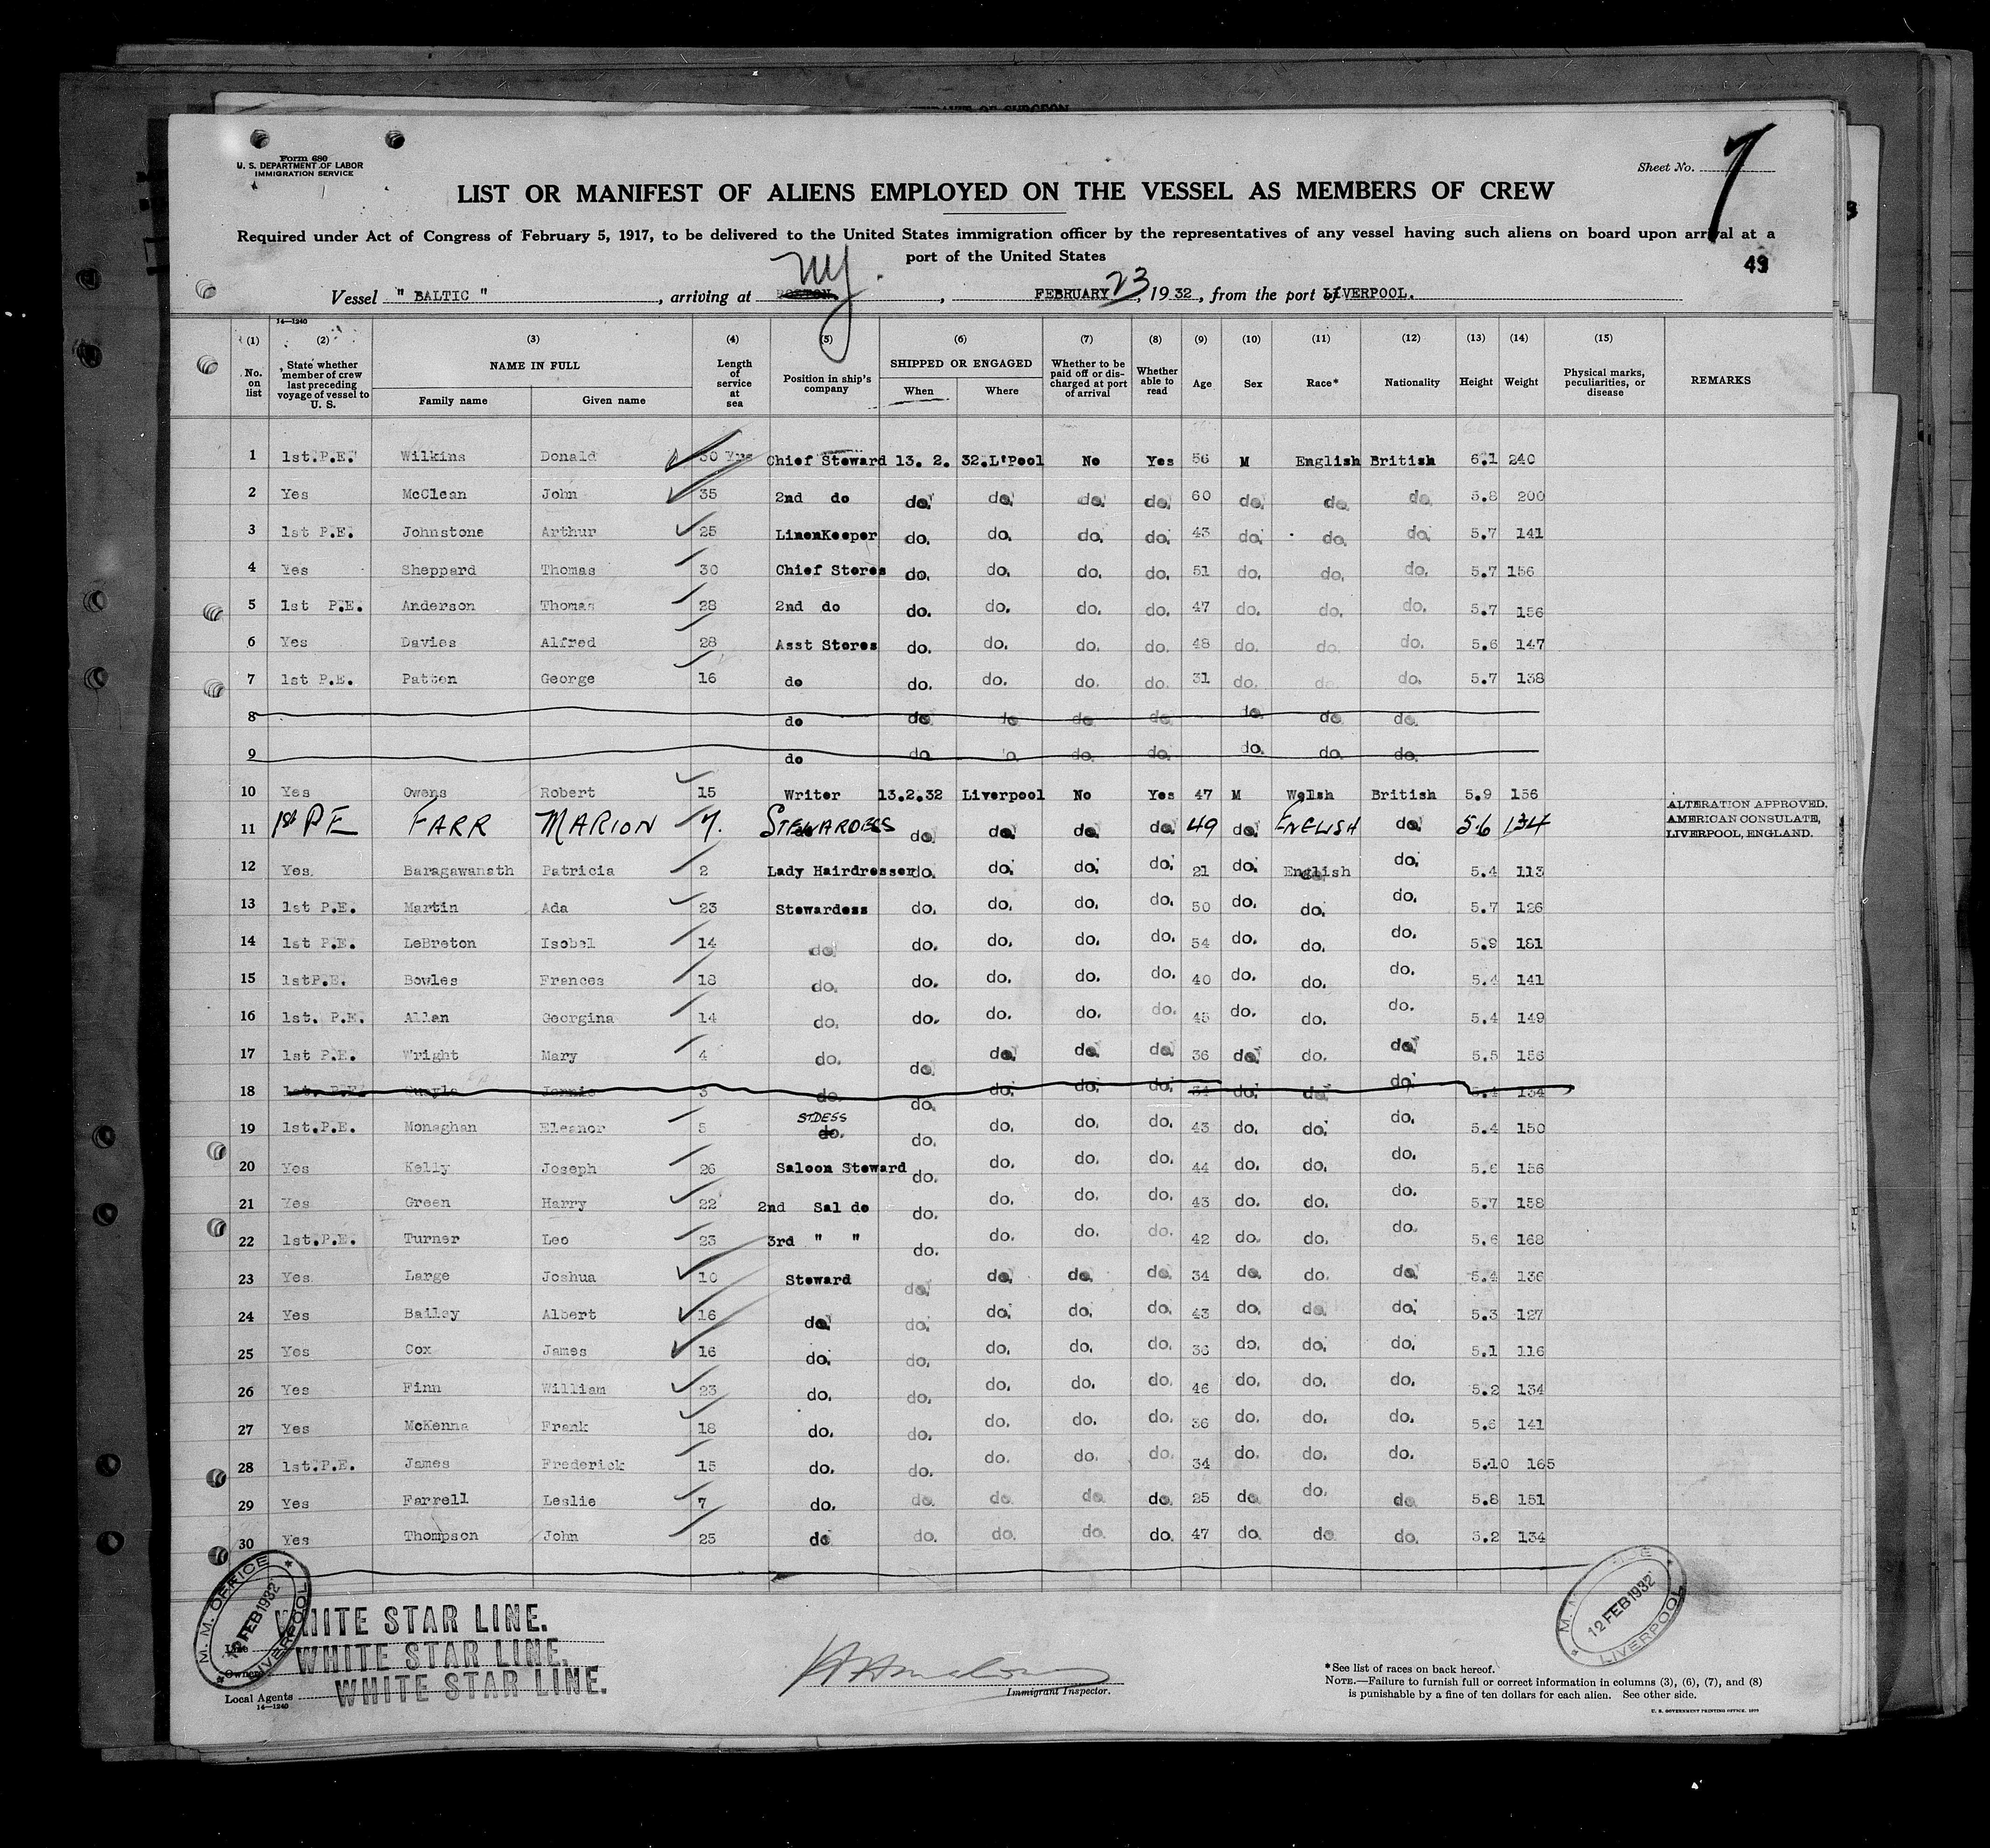 Form 680
U. S. DEPARTMENT OF LABOR
IMMIGRATION SERVICE
Sheet No. 7
LIST OR MANIFEST OF ALIENS EMPLOYED ON THE VESSEL AS MEMBERS OF CREW
Required under Act of Congress of February 5, 1917, to be delivered to the United States immigration officer by the representatives of any vessel having such aliens on board upon arrival at a
port of the United States
49
Vessel " BALTIC ", arriving at BOSTON NY., FEBRUARY 23, 1932, from the port of LIVERPOOL.
14—1240
(1) (2) (3) (4) (5) (6) (7) (8) (9) (10) (11) (12) (13) (14) (15)
No. on list State whether member of crew last preceding voyage of vessel to U. S. NAME IN FULL Family name Given name Length of service at sea Position in ship's company SHIPPED OR ENGAGED When Where Whether to be paid off or discharged at port of arrival Whether able to read Age Sex Race* Nationality Height Weight Physical marks, peculiarities, or disease REMARKS
1 1st.P.E. Wilkins Donald 30 Yrs Chief Steward 13. 2. 32. L'Pool No Yes 56 M English British 6.1 240
2 Yes McClean John 35 2nd do do. do. do. do. 60 do. do. do. 5.8 200
3 1st P.E. Johnstone Arthur 25 LinenKeeper do. do. do. do. 43 do. do. do. 5.7 141
4 Yes Sheppard Thomas 30 Chief Stores do. do. do. do. 51 do. do. do. 5.7 156
5 1st P.E. Anderson Thomas 28 2nd do do. do. do. do. 47 do. do. do. 5.7 156
6 Yes Davies Alfred 28 Asst Stores do. do. do. do. 48 do. do. do. 5.6 147
7 1st P.E. Patten George 16 do do. do. do. do. 31 do. do. do. 5.7 138
8 do do. do do do. do. do. do.
9 do do. o. do. do. do. do. do.
10 Yes Owens Robert 15 Writer 13.2.32 Liverpool No Yes 47 M Welsh British 5.9 156
11 1st PE FARR MARION 7. STEWARDESS do. do. do. do. 49 do. ENGLISH do. 5.6 134 ALTERATION APPROVED. AMERICAN CONSULATE, LIVERPOOL, ENGLAND.
12 Yes. Baragawanath Patricia 2 Lady Hairdresser do. do. do. do. 21 do. English do. 5.4 113
13 1st P.E. Martin Ada 23 Stewardess do. do. do. do. 50 do. do. do. 5.7 126
14 1st P.E. LeBreton Isobel 14 do. do. do. do. do. 54 do. do. do. 5.9 181
15 1stP.E. Bowles Frances 18 do. do. do. do. do. 40 do. do. do. 5.4 141
16 1st. P.E. Allan Georgina 14 do. do. do. do. do. 45 do. do. do. 5.4 149
17 1st P.E. Wright Mary 4 do. do. do. do. do. 36 do. do. do. 5.5 156
18 1st. P.E. Quayle Jennie 3 do. do. do. do. do. 34 do. do. do. 5.4 134
19 1st.P.E. Monaghan Eleanor 5 STDESS do. do. do. do. do. 43 do. do. do. 5.4 150
20 Yes Kelly Joseph 26 Saloon Steward do. do. do. do. 44 do. do. do. 5.6 156
21 Yes Green Harry 22 2nd Sal do do. do. do. do. 43 do. do. do. 5.7 158
22 1st.P.E. Turner Leo 23 3rd " " do. do. do. do. 42 do. do. do. 5.6 168
23 Yes Large Joshua 10 Steward do. do. do. do. 34 do. do. do. 5.4 136
24 Yes Bailey Albert 16 do. do. do. do. do. 43 do. do. do. 5.3 127
25 Yes Cox James 16 do. do. do. do. do. 36 do. do. do. 5.1 116
26 Yes Finn William 23 do. do. do. do. do. 46 do. do. do. 5.2 134
27 Yes McKenna Frank 18 do. do. do. do. do. 36 do. do. do. 5.6 141
28 1st.P.E. James Frederick 15 do. do. do. do. do. 34 do. do. do. 5.10 165
29 Yes Farrell Leslie 7 do. do. do. do. do. 25 do. do. do. 5.8 151
30 Yes Thompson John 25 do do. do. do. do. 47 do. do. do. 5.2 134
M. M. OFFICE 12 FEB 1932 LIVERPOOL
M. 12 FEB 1932 LIVERPOOL
Line WHITE STAR LINE.
Owners WHITE STAR LINE.
Local Agents WHITE STAR LINE.
14—1240
Immigrant Inspector.
*See list of races on back hereof.
NOTE.—Failure to furnish full or correct information in columns (3), (6), (7), and (8)
is punishable by a fine of ten dollars for each alien. See other side.
U. S. GOVERNMENT PRINTING OFFICE.